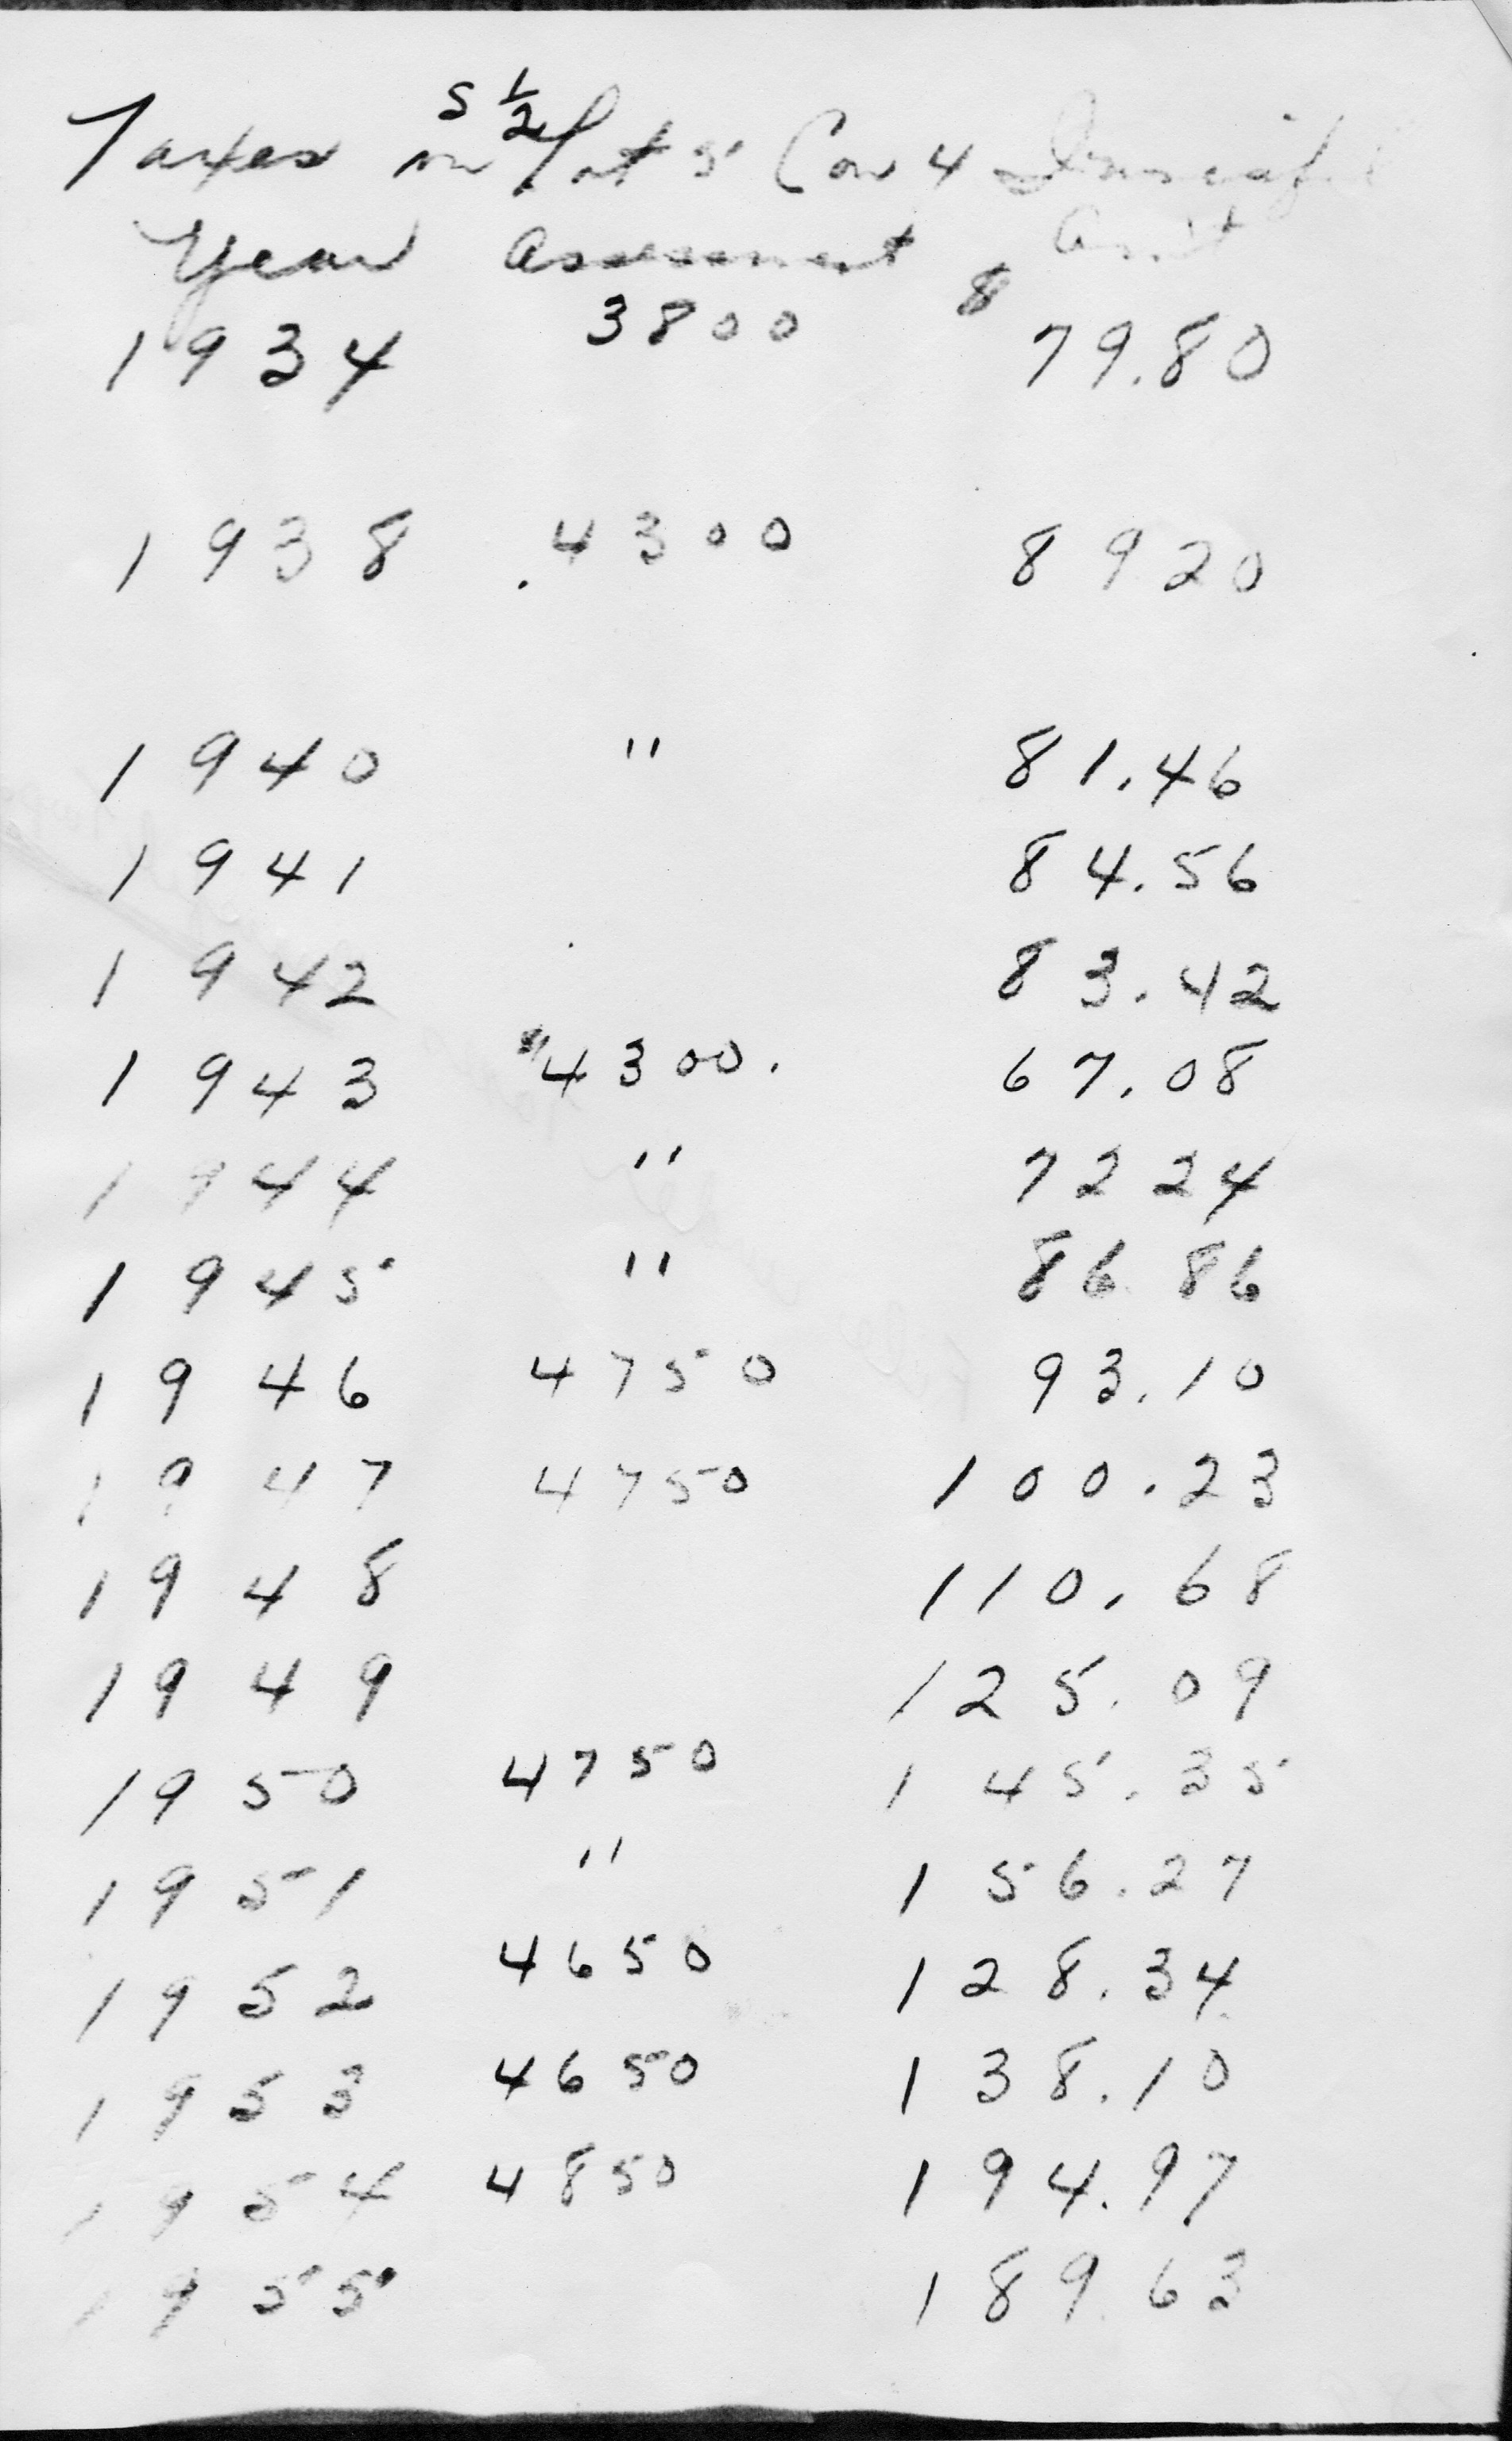 S 1/2
Taxes on Lot 5 Con 4 Innisfil
Year Assessment Am't
1934 3800 $ 79.80
1938 .4300 8920
1940 " 81.46
1941 84.56
1942 83.42
1943 $4300. 67.08
1944 " 72 24
1945 " 86 86
1946 4750 93.10
1947 4750 100.23
1948 110.68
1949 125.09
1950 4750 145.35
1951 " 156.27
1952 4650 128.34
1953 4650 138.10
1954 4850 194.97
1955 189.63